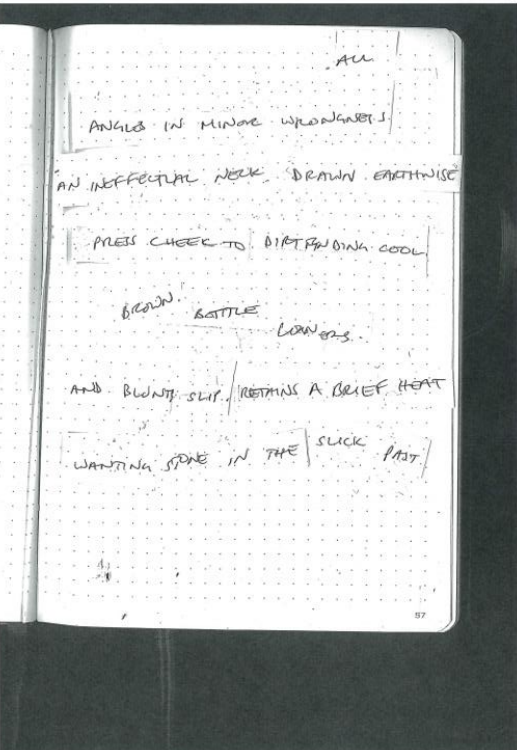 ALL
ANGLES IN MINOR WRONGNESS
AN INEFFECTUAL NECK DRAWN EARTHWISE
PRESS CHEEK TO DIRT FINDING COOL
BROWN BOTTLE LOWERS.
AND BLUNTS SLIP. RETAINS A BRIEF HEAT
WANTING STONE IN THE SLICK PAST
57